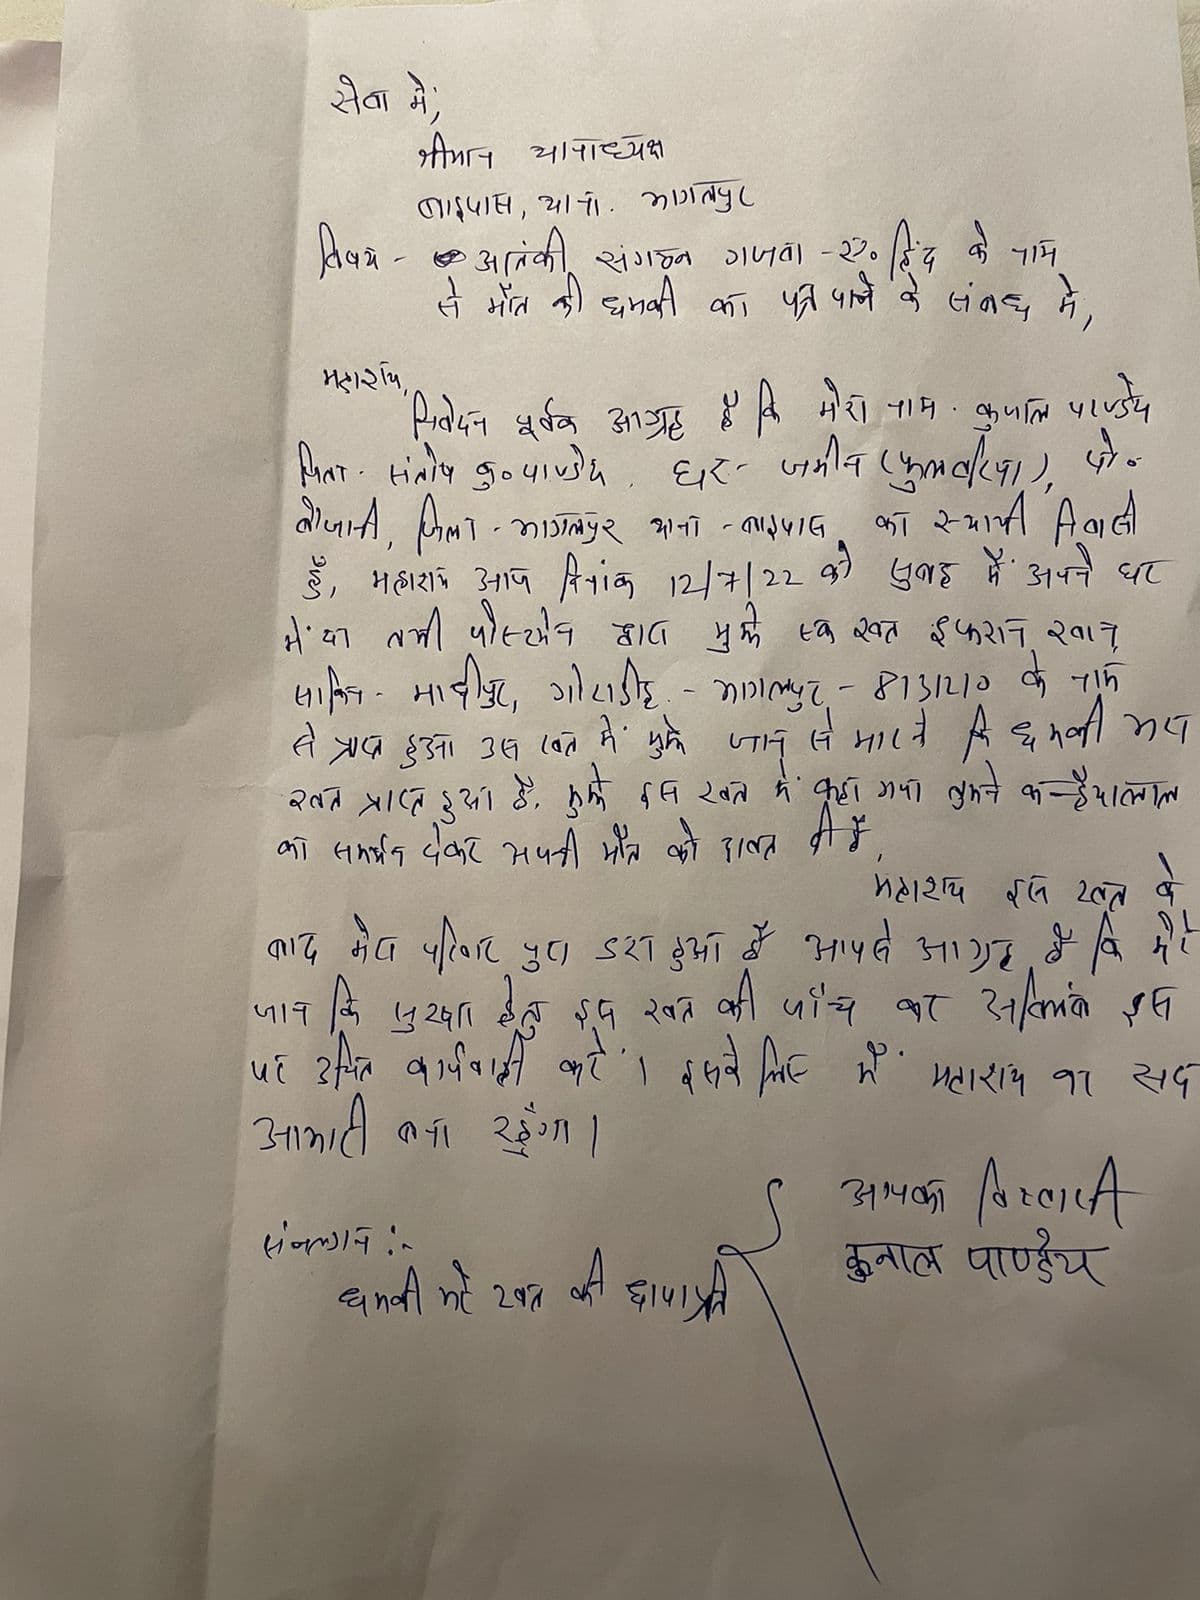 सेवा में,
श्रीमान थानाध्यक्ष
बाइपास, थाना. भागलपुर
विषय - आतंकी संगठन गजवा -ए० हिंद के नाम
से मौत की धमकी का पत्र पाने के संबध में,
महाशय,
निवेदन पूर्वक आग्रह है कि मेरा नाम. कुणाल पाण्डेय
पिता - संतोष कु० पाण्डेय. घर - जमीन (फुलवरिया), पो०
जिला - भागलपुर थाना - बाइपास का स्थायी निवासी
हूँ, महाशय आज दिनांक 12/7/22 को सुबह में अपने घर
में था तभी पोस्टमेन द्वारा मुझे एक खत इफरान खान,
साकिन - माछीपुर, गोराडीह - भागलपुर - 813210 के नाम
से प्राप्त हुआ उस खत में मुझे जान से मारने कि धमकी भरा
खत प्राप्त हुआ है. मुझे इस खत में कहा गया तुमने कन्हैयालाल
का समर्थन देकर अपनी मौत को दावत दी है,
महाशय इस खत के
बाद मेरा परिवार पुरा डरा हुआ है आपसे आग्रह है कि मेरे
जान कि सुरक्षा हेतु इस खत की जाँच कर इस
पर उचित कार्यवाही करें। इसके लिए मैं महाशय का सदा
आभारी बना रहूँगा।
आपका विश्वासी
कुनाल पाण्डेय
संलग्न :-
धमकी भरे खत की छायाप्रति